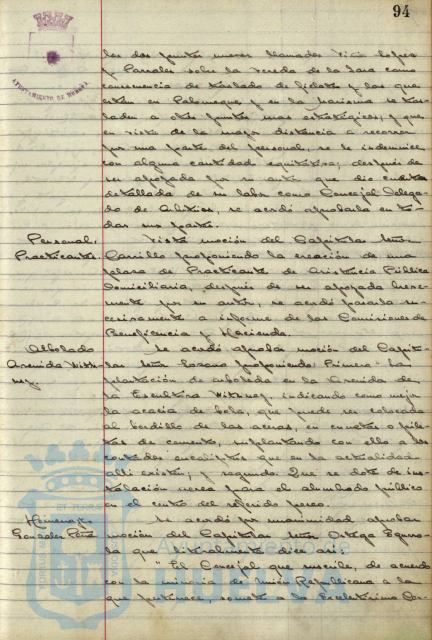 94
AYUNTAMIENTO DE HUELVA
los dos puntos nuevos llamados
y Parrales sobre la Vereda de la como
consecuencia de traslado de fielato y los que
están en Palomeque y en la Marisma se tras-
laden a otros puntos mas estratégicos, y que
en vista de la mayor distancia a recorrer
por una parte del personal, se le indemnice
con alguna cantidad equitativa; después de
ser apoyada por su autor que dio cuenta
detallada de su labor como Concejal Delega-
do de Arbitrios, se acordó aprobarla en to-
das sus partes.
Personal.
Practicantes.
Vista moción del Capitular Señor
Carrillo proponiendo la creación de una
plaza de Practicante de Asistencia Pública
Domiciliaria, después de ser apoyada breve-
mente por su autor, se acordó pasarla ne-
cesariamente a informe de las Comisiones de
Beneficencia y Hacienda.
Arbolado
Avenida Whit-
ney.
Se acordó aprobar moción del Capitu-
lar Señor Lozano proponiendo: Primero: La
plantación de arboleda en la Avenida de
la Escultora Witney, indicando como mejor
la acacia de bola, que puede ser colocada
al bordillo de las aceras, en cunetas o pile-
tas de cemento, suplantando con ello a los
contados eucaliptos que en la actualidad
allí existen; y segundo: Que se dote de ins-
talación nueva para el alumbrado público
en el centro del referido paseo.
Homenaje
González Peña
Se acordó por unanimidad aprobar
moción del Capitular Señor Ortega Egurro-
la que literalmente dice así:
"El Concejal que suscribe, de acuerdo
con la minoría de Unión Republicana a la
que pertenece, somete a la Excelentísima Cor-